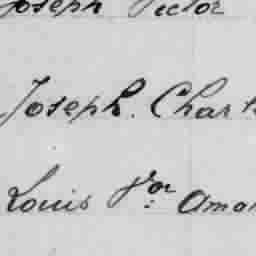 Joseph Victor
Joseph. Charl
Louis Jor Aman